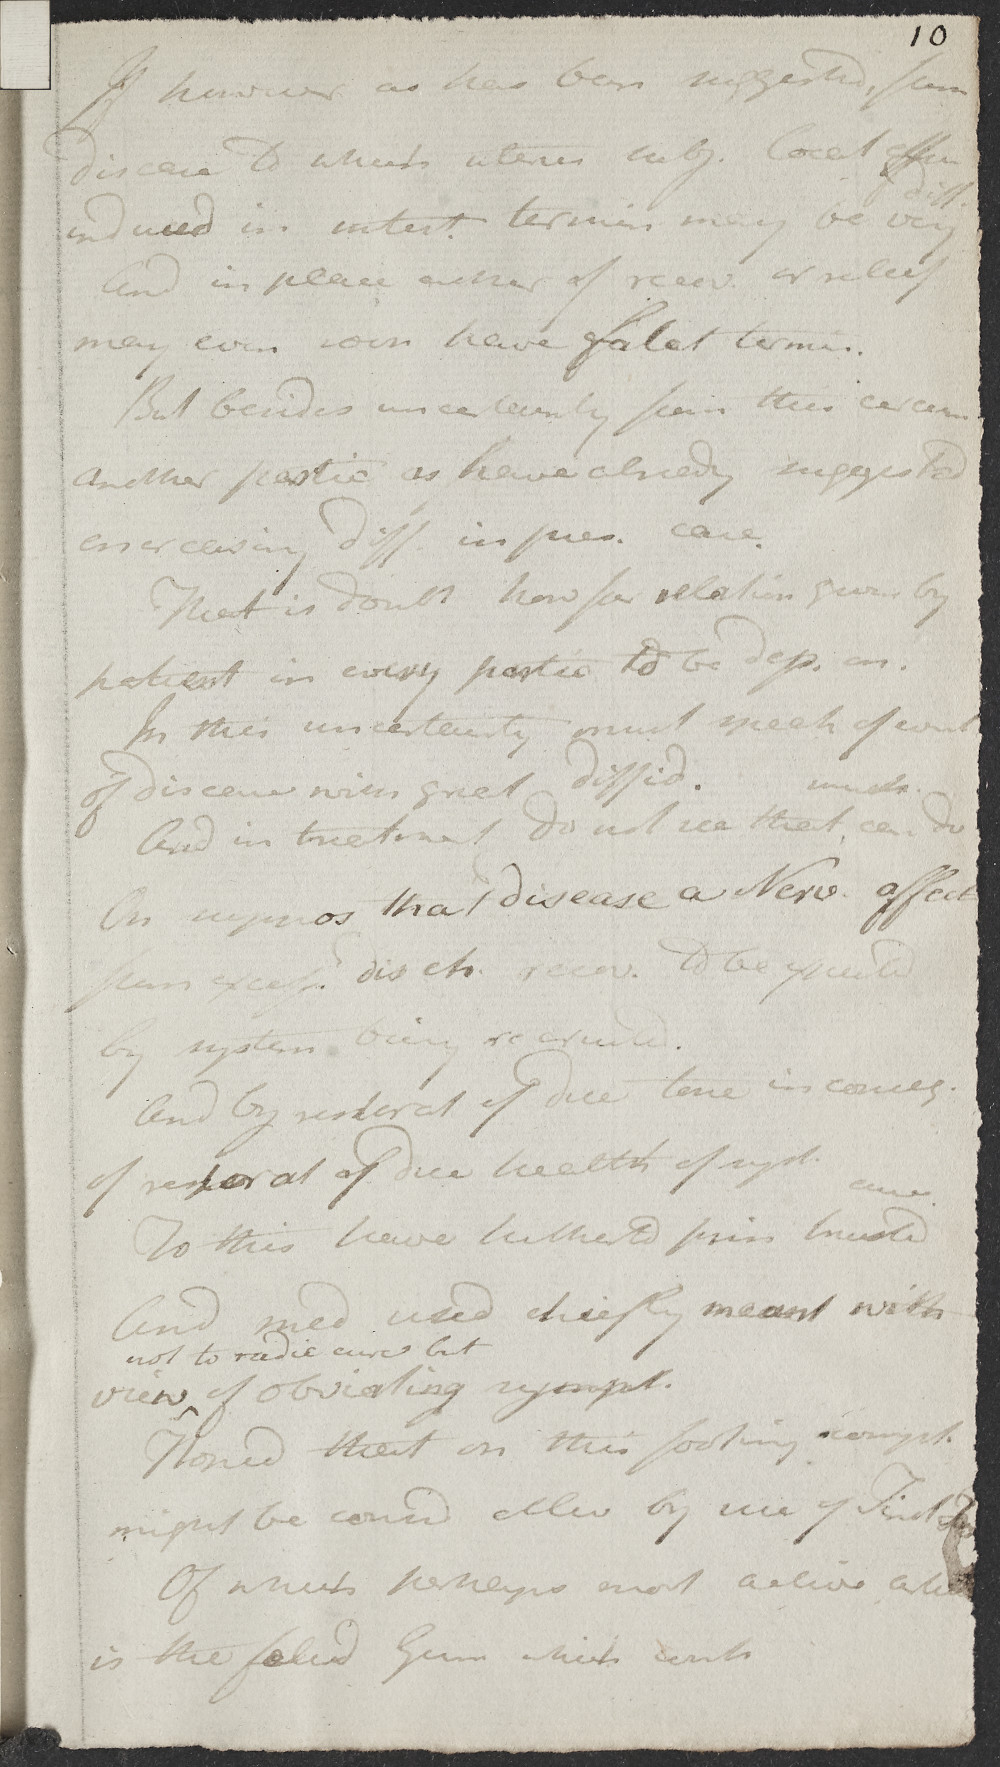 10
If however as has been suggested, from
disease to which uterus subj. local affn
diff.
induced in intest. termin may be very
And in place either of recov. or relief
may even soon have fatal termin.
But besides uncertainty from this circum
another partic as have already suggested
encreasing diff. in pres. case.
That is doubt how far relation given by
patient in every partic to be dep. on.
In this uncertainty must speak of event
of disease with great diffid. much.
And in treatment do not see that can do
On suppos that disease a Nerv. affect
from excess. disch. recov. to be expected
by system being recruited.
And by restorat of due tone in conseq.
of restorat of due health of syst.
cure.
To this have hitherto prin trusted
And med used chiefly meant with
not to radic cure but
view of obviating sympt.
Hoped that on this footing compt.
might be consid allev by use of Tinct
Of which perhaps most active
is the fetid Gum which